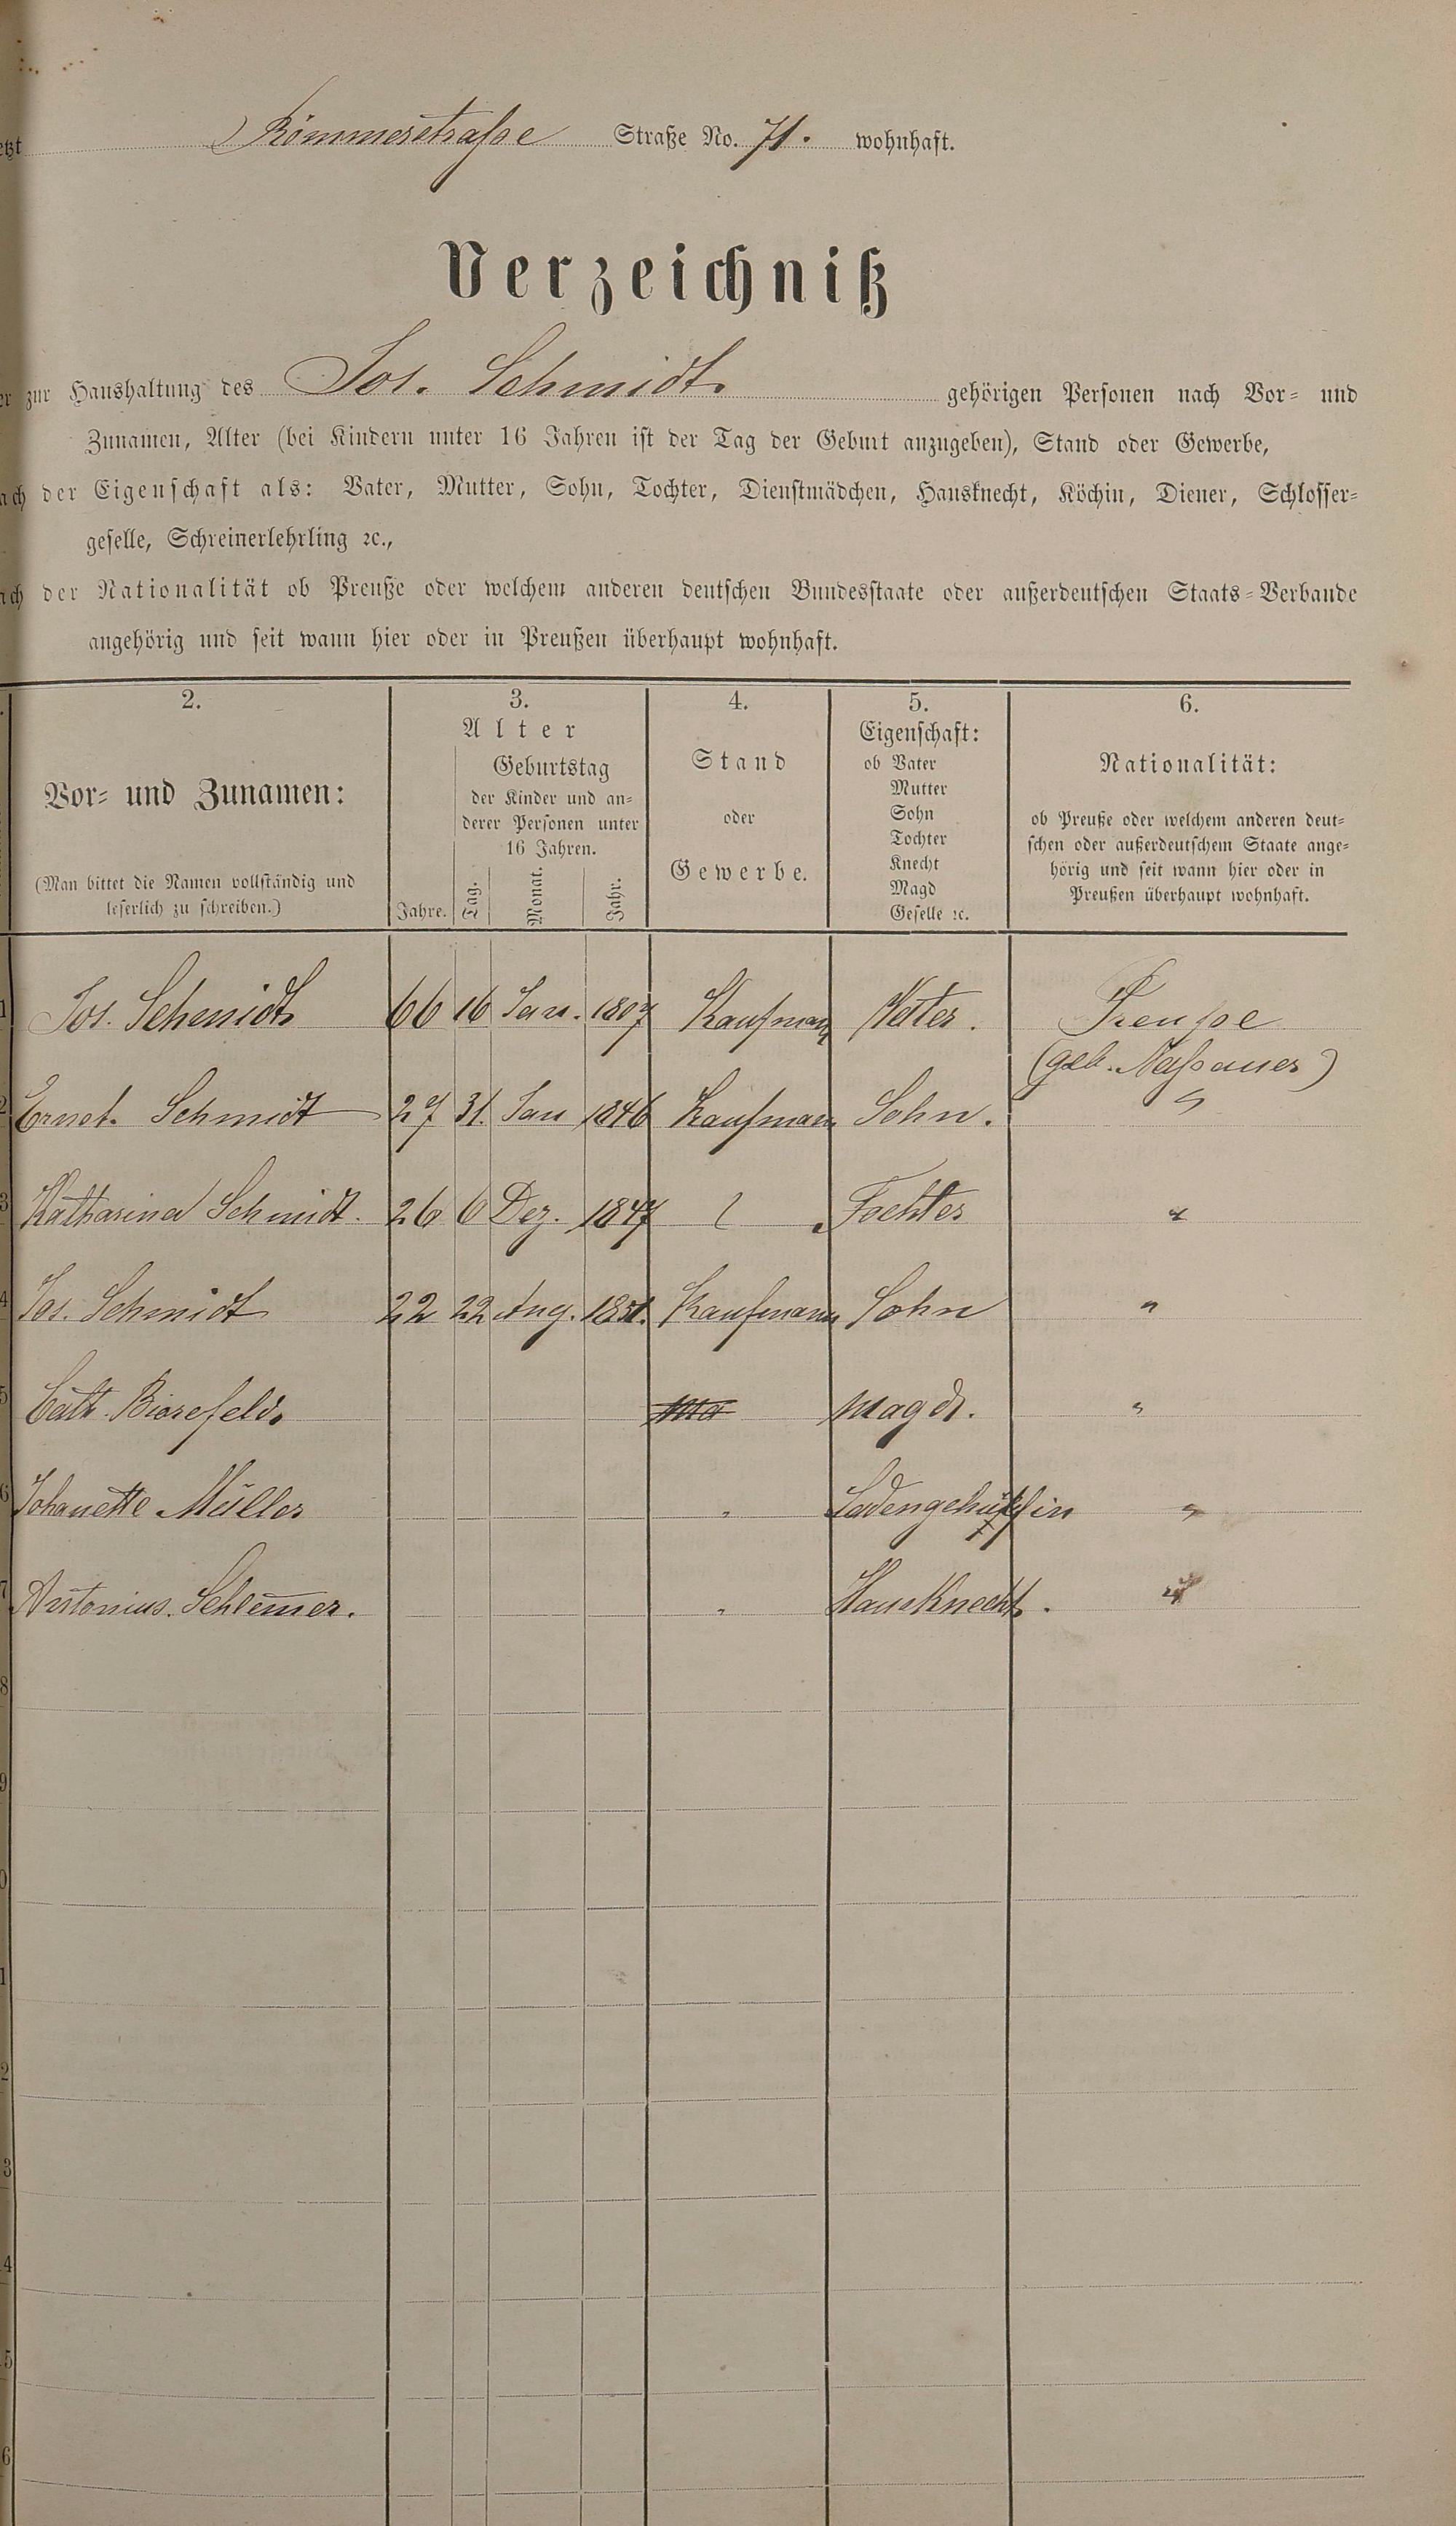 etzt Römmerstraße Straße No. 71. wohnhaft.
Verzeichniß
er zur Haushaltung des Jos. Schmidt gehörigen Personen nach Vor- und
Zunamen, Alter (bei Kindern unter 16 Jahren ist der Tag der Geburt anzugeben), Stand oder Gewerbe,
ach der Eigenschaft als: Vater, Mutter, Sohn, Tochter, Dienstmädchen, Hausknecht, Köchin, Diener, Schlosser-
geselle, Schreinerlehrling ꝛc.,
ach der Nationalität ob Preuße oder welchem anderen deutschen Bundesstaate oder außerdeutschen Staats-Verbande
angehörig und seit wann hier oder in Preußen überhaupt wohnhaft.
2.
Vor- und Zunamen:
(Man bittet die Namen vollständig und
leserlich zu schreiben.)
3.
Alter
Geburtstag
der Kinder und an-
derer Personen unter
16 Jahren.
Jahre. Tag. Monat. Jahr.
4.
Stand
oder
Gewerbe.
5.
Eigenschaft:
ob Vater
Mutter
Sohn
Tochter
Knecht
Magd
Geselle ꝛc.
6.
Nationalität:
ob Preuße oder welchem anderen deut-
schen oder außerdeutschem Staate ange-
hörig und seit wann hier oder in
Preußen überhaupt wohnhaft.
1 Jos. Schmidt 66 16 Jan. 1807 Kaufmann Vater. Preuße
(geb. Naßauer)
2 Ernst. Schmidt 27 31. Jan 1846 Kaufmann Sohn. "
3 Katharina Schmidt. 26 6 Dez. 1847 Tochter "
4 Jos. Schmidt 22 22 Aug. 1851. Kaufmann Sohn "
5 Cath. Bierefeld. Ma Magd. "
6 Johanette Müller " Ladengehülfin "
7 Antonius. Schlem̅er. " Hausknecht. "
8
9
0
1
2
3
4
5
6